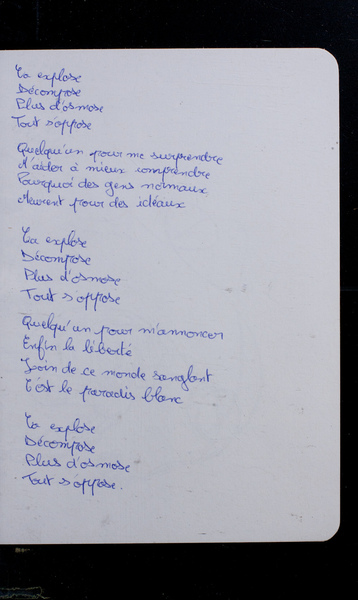 Ca explose
Décompose
Plus d'osmose
Tout s'oppose
Quelqu'un pour me surprendre
M'aider à mieux comprendre
Pourquoi des gens normaux
Meurent pour des idéaux
Ca explose
Décompose
Plus d'osmose
Tout s'oppose
Quelqu'un pour m'annoncer
Enfin la liberté
Loin de ce monde sanglant
C'est le paradis blanc
Ca explose
Décompose
Plus d'osmose
Tout s'oppose.